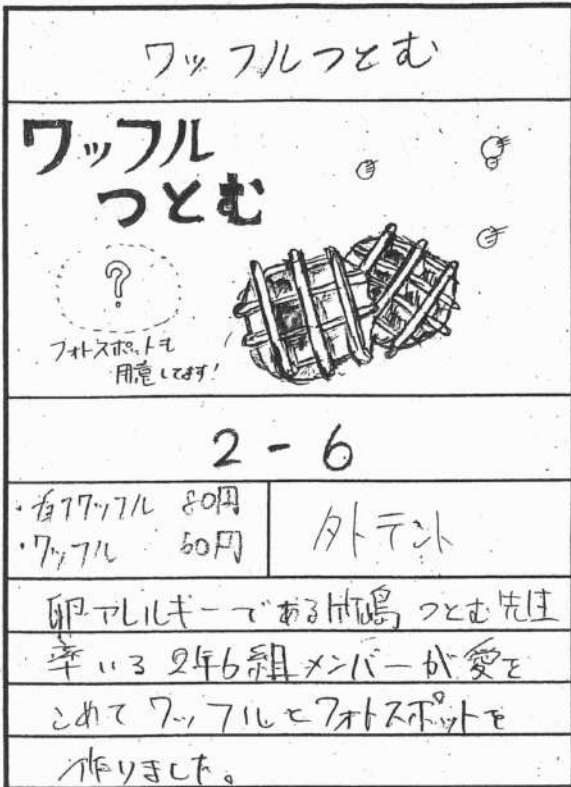 ワッフルつとむ
ワッフル
つとむ
?
フォトスポットも
用意してます!
2-6
ワッフル 80円
・ワッフル 50円
外テント
卵アレルギーである 嶋 つとむ先生
率いる 2年6組メンバーが愛を
こめて ワッフルとフォトスポットを
作りました。